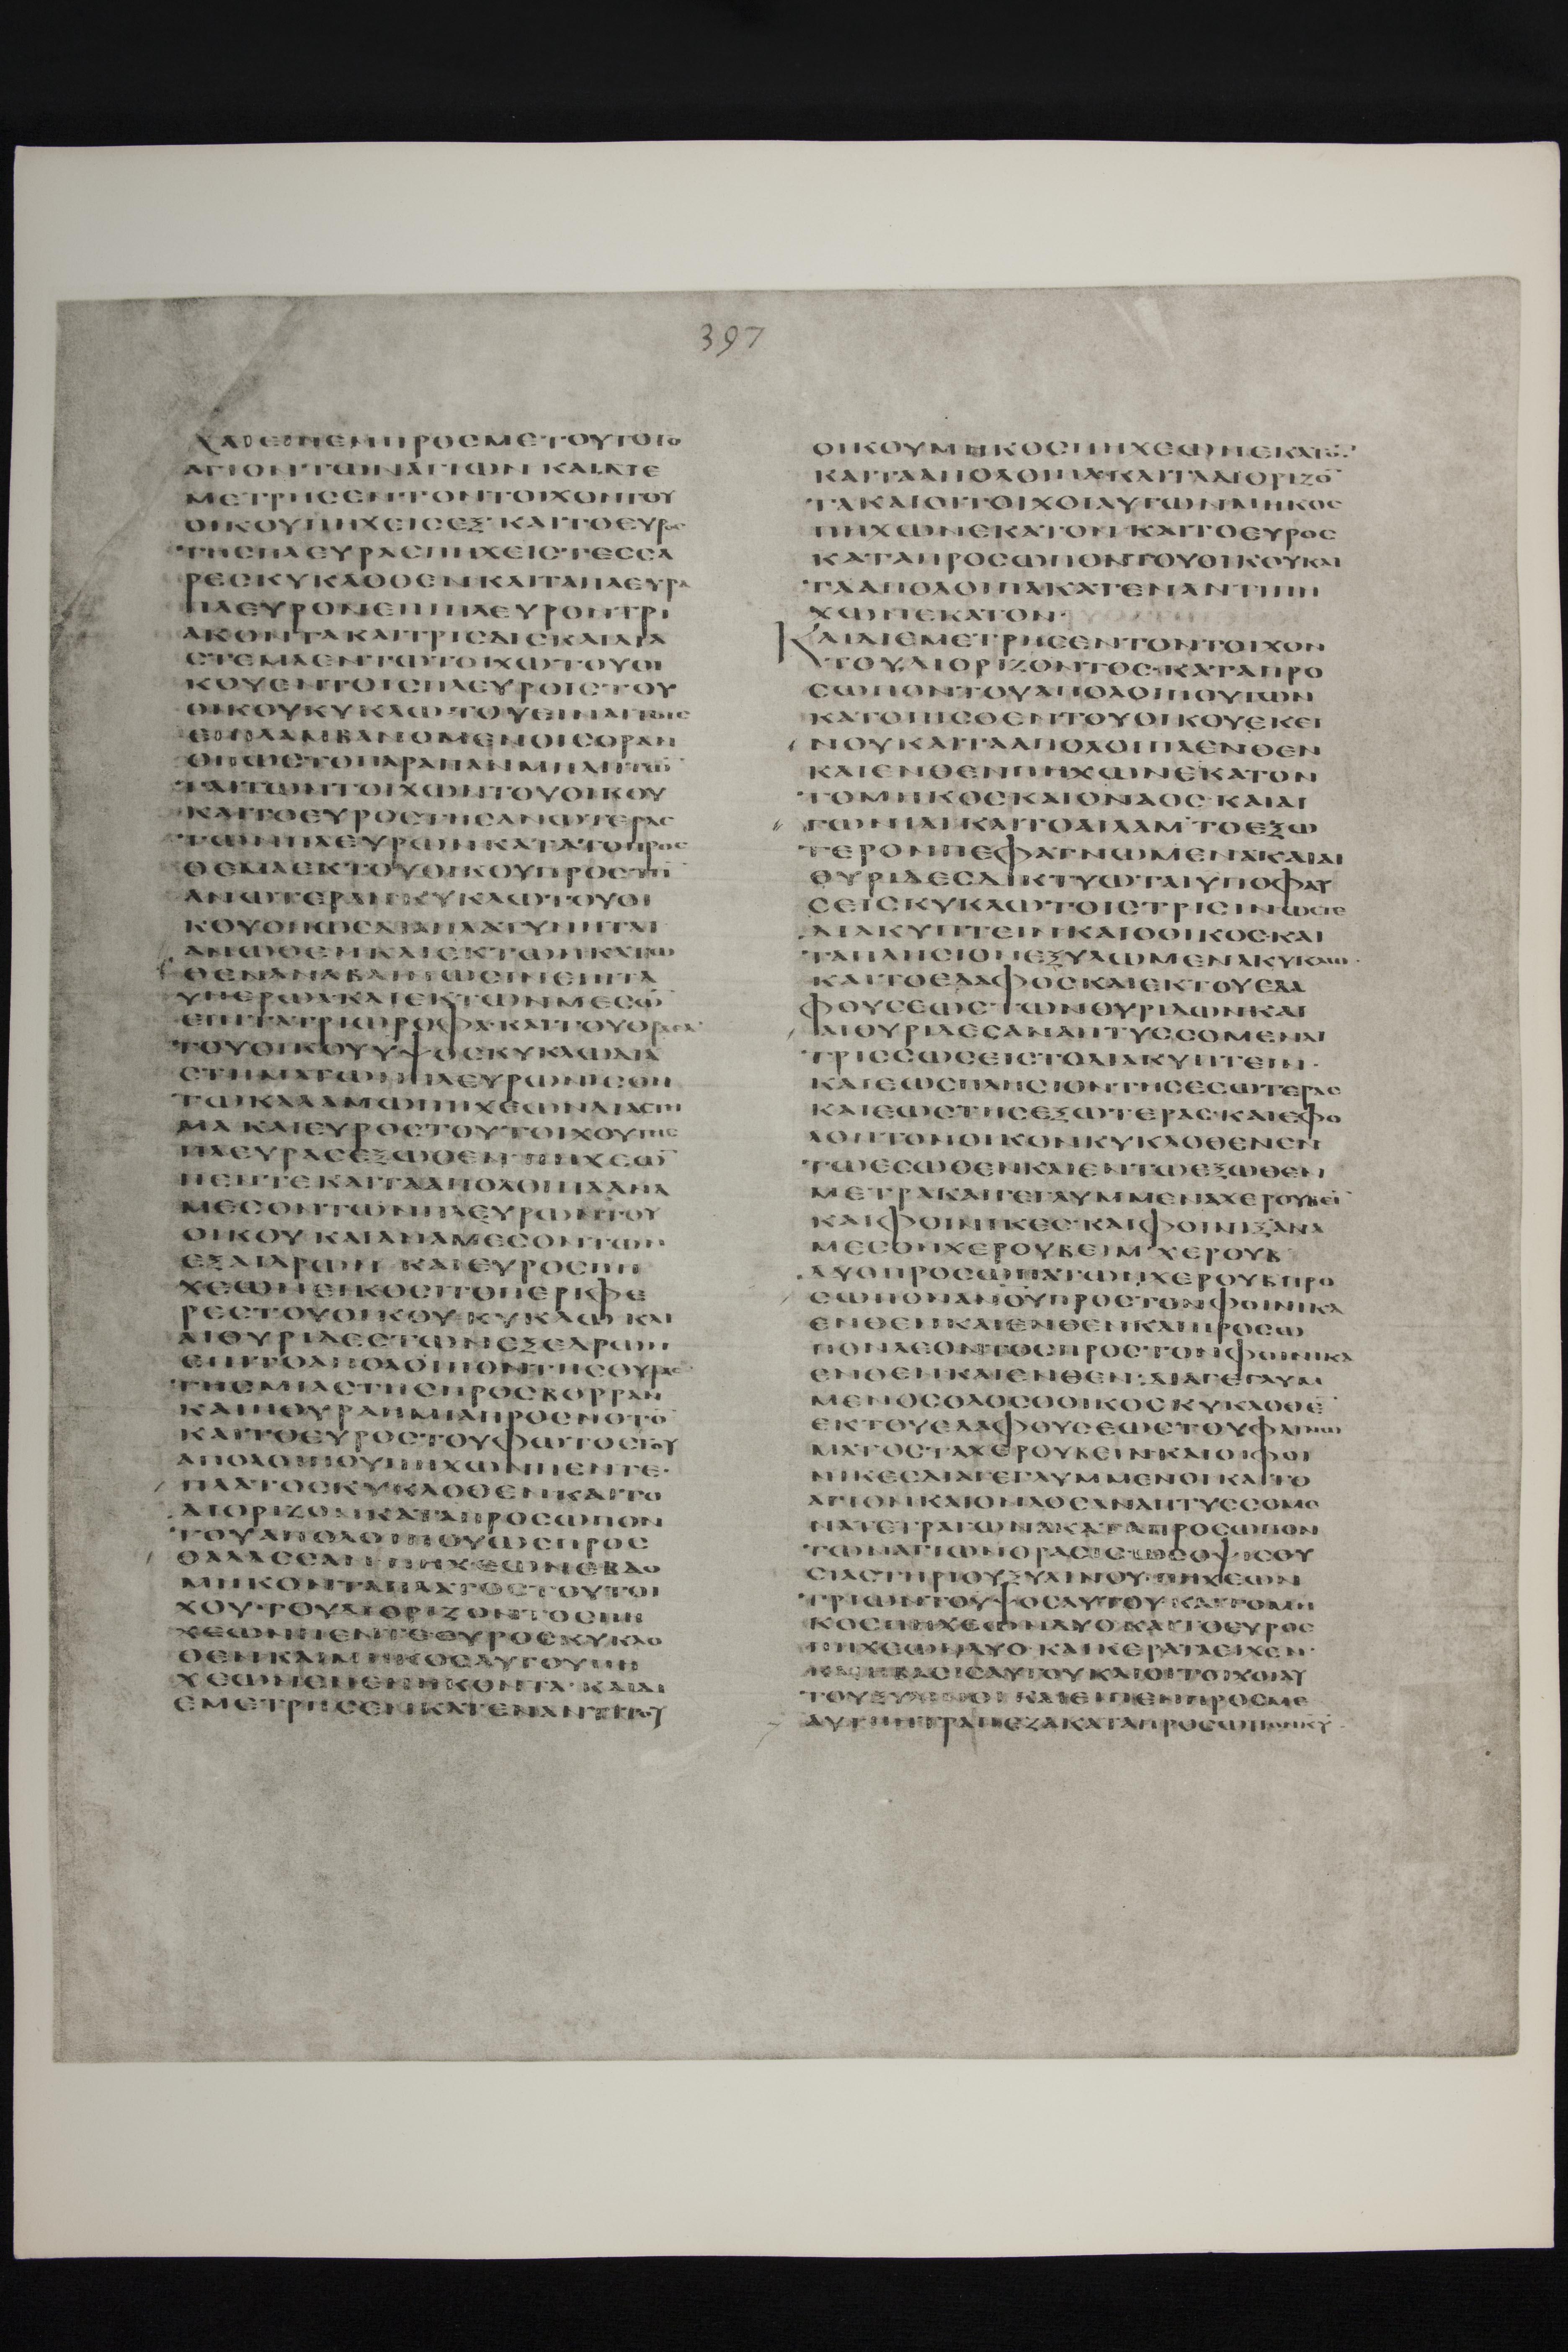 397
ΚΑΙΕΙΠΕΝΠΡΟCΜΕΤΟΥΤΟΤΟ
ΑΓΙΟΝΤΩΝΑΓΙΩΝΚΑΙΔΙΕ
ΜΕΤΡΗCΕΝΤΟΝΤΟΙΧΟΝΤΟΥ
ΟΙΚΟΥΠΗΧΕΙCΕΞ ΚΑΙΤΟΕΥΡΟC
ΤΗCΠΛΕΥΡΑCΠΗΧΕΙCΤΕCCΑ
ΡΕCΚΥΚΛΟΘΕΝΚΑΙΤΑΠΛΕΥΡΑ
ΠΛΕΥΡΟΝΕΠΙΠΛΕΥΡΟΝΤΡΙ
ΑΚΟΝΤΑΚΑΙΤΡΙCΔΙCΚΑΙΔΙΑ
CΤΕΜΑΕΝΤΩΤΟΙΧΩΤΟΥΟΙ
ΚΟΥΕΝΤΟΙCΠΛΕΥΡΟΙCΤΟΥ
ΟΙΚΟΥΚΥΚΛΩΤΟΥΕΙΝΑΙΤΟΙC
ΕΠΙΛΑΜΒΑΝΟΜΕΝΟΙCΟΡΑΝ
ΟΠΩCΤΟΠΑΡΑΠΑΝΜΗΑΠΤΩ̅
ΤΑΙΤΩΝΤΟΙΧΩΝΤΟΥΟΙΚΟΥ
ΚΑΙΤΟΕΥΡΟCΤΗCΑΝΩΤΕΡΑC
ΤΩΝΠΛΕΥΡΩΝΚΑΤΑΤΟΠΡΟC
ΘΕΜΑΕΚΤΟΥΟΙΚΟΥΠΡΟCΤΗ̅
ΑΝΩΤΕΡΑΝΚΥΚΛΩΤΟΥΟΙ
ΚΟΥΟΠΩCΔΙΑΠΛΑΤΥΝΗΤΑΙ
ΑΝΩΘΕΝΚΑΙΕΚΤΩΝΚΑΤΩ
ΘΕΝΑΝΑΒΑΙΝΩCΙΝΕΠΙΤΑ
ΥΠΕΡΩΑ·ΚΑΙΕΚΤΩΝΜΕCΩ̅
ΕΠΙΤΑΤΡΙΩΡΟΦΑ·ΚΑΙΤΟΥΘΡΑΕΛ
ΤΟΥΟΙΚΟΥΥΨΟCΚΥΚΛΩΔΙΑ
CΤΗΜΑΤΩΝΠΛΕΥΡΩΝΙCΟΝ
ΤΩΚΑΛΑΜΩΠΗΧΕΩΝΔΙΑCΤΗ
ΜΑΚΑΙΕΥΡΟCΤΟΥΤΟΙΧΟΥΤΗC
ΠΛΕΥΡΑCΕΞΩΘΕΝ ΠΗΧΕΩ̅
ΠΕΝΤΕΚΑΙΤΑΑΠΟΛΟΙΠΑΑΝΑ
ΜΕCΟΝΤΩΝΠΛΕΥΡΩΝΤΟΥ
ΟΙΚΟΥ ΚΑΙΑΝΑΜΕCΟΝΤΩΝ
ΕΞΑΙΔΡΩΝ ΚΑΙΕΥΡΟCΠΗ
ΧΕΩΝΕΙΚΟCΙΤΟΠΕΡΙΦΕ
ΡΕCΤΟΥΟΙΚΟΥ ΚΥΚΛΩ ΚΑΙ
ΑΙΘΥΡΙΔΕCΤΩΝΕΞΕΔΡΩΝ
ΕΠΙΤΟΑΠΟΛΟΙΠΟΝΤΗCΘΥΡΑC
ΤΗCΜΙΑCΤΗCΠΡΟCΒΟΡΡΑΝ
ΚΑΙΗΘΥΡΑΗΜΙΑΠΡΟCΝΟΤΟ̅
ΚΑΙΤΟΕΥΡΟCΤΟΥΦΩΤΟCΤΟΥ
ΑΠΟΛΟΙΠΟΥΠΗΧΩΝΠΕΝΤΕ·
ΠΛΑΤΟCΚΥΚΛΟΘΕΝΚΑΙΤΟ
ΔΙΟΡΙΖΟΝΚΑΤΑΠΡΟCΩΠΟΝ
ΤΟΥΑΠΟΛΟΙΠΟΥΩCΠΡΟC
ΘΑΛΑCCΑΝ ΠΗΧΕΩΝΕΒΔΟ
ΜΗΚΟΝΤΑΠΛΑΤΟCΤΟΥΤΟΙ
ΧΟΥ·ΤΟΥΔΙΟΡΙΖΟΝΤΟCΠΗ
ΧΕΩΝΠΕΝΤΕ·ΕΥΡΟCΚΥΚΛΟ
ΘΕΝΚΑΙΜΗΚΟCΑΥΤΟΥΠΗ
ΧΕΩΝΕΝΕΝΗΚΟΝΤΑ·ΚΑΙΔΙ
ΕΜΕΤΡΗCΕΝΚΑΤΕΝΑΝΤΙΤΟΥ
ΟΙΚΟΥΜΗΚΟCΠΗΧΕΩΝΕΚΑΤΟ̅·
ΚΑΙΤΑΑΠΟΛΟΙΠΑ·ΚΑΙΤΑΔΙΟΡΙΖΟ̅
ΤΑΚΑΙΟΙΤΟΙΧΟΙΑΥΤΩΝΜΗΚΟC
ΠΗΧΩΝΕΚΑΤΟΝ ΚΑΙΤΟΕΥΡΟC
ΚΑΤΑΠΡΟCΩΠΟΝΤΟΥΟΙΚΟΥΚΑΙ
ΤΑΑΠΟΛΟΙΠΑΚΑΤΕΝΑΝΤΙΠΗ
ΧΩΝΕΚΑΤΟΝ·
ΚΑΙΔΙΕΜΕΤΡΗCΕΝΤΟΝΤΟΙΧΟΝ
ΤΟΥΔΙΟΡΙΖΟΝΤΟC·ΚΑΤΑΠΡΟ
CΩΠΟΝΤΟΥΑΠΟΛΟΙΠΟΥΤΩΝ
ΚΑΤΟΠΙCΘΕΝΤΟΥΟΙΚΟΥΕΚΕΙ
ΝΟΥΚΑΙΤΑΑΠΟΛΟΙΠΑΕΝΘΕΝ
ΚΑΙΕΝΘΕΝΠΗΧΩΝΕΚΑΤΟΝ
ΤΟΜΗΚΟCΚΑΙΟΝΑΟC ΚΑΙΑΙ
ΓΩΝΙΑΙΚΑΙΤΟΑΙΛΑΜ ΤΟΕΞΩ
ΤΕΡΟΝΠΕΦΑΤΝΩΜΕΝΑΚΑΙΑΙ
ΘΥΡΙΔΕCΔΙΚΤΥΩΤΑΙΥΠΟΦΑΥ
CΕΙCΚΥΚΛΩΤΟΙCΤΡΙCΙΝΩCΤΕ
ΔΙΑΚΥΠΤΕΙΝΚΑΙΟΟΙΚΟC·ΚΑΙ
ΤΑΠΛΗCΙΟΝΕΞΥΛΩΜΕΝΑΚΥΚΛΩ·
ΚΑΙΤΟΕΔΑΦΟCΚΑΙΕΚΤΟΥΕΔΑ
ΦΟΥCΕΩCΤΩΝΘΥΡΙΔΩΝΚΑΙ
ΑΙΘΥΡΙΔΕCΑΝΑΠΤΥCCΟΜΕΝΑΙ
ΤΡΙCCΩCΕΙCΤΟΔΙΑΚΥΠΤΕΙΝ·
ΚΑΙΕΩCΠΛΗCΙΟΝΤΗCΕCΩΤΕΡΑC
ΚΑΙΕΩCΤΗCΕΞΩΤΕΡΑC·ΚΑΙΕΦΟ
ΛΟΝΤΟΝΟΙΚΟΝΚΥΚΛΟΘΕΝΕΝ
ΤΩΕCΩΘΕΝΚΑΙΕΝΤΩΕΞΩΘΕΝ
ΜΕΤΡΑΚΑΙΓΕΓΛΥΜΜΕΝΑΧΕΡΟΥΒΕΙ̅
ΚΑΙΦΟΙΝΙΚΕC·ΚΑΙΦΟΙΝΙΞΑΝΑ
ΜΕCΟΝΧΕΡΟΥΒΕΙΜ ΧΕΡΟΥΒ
ΔΥΟΠΡΟCΩΠΑΤΩΝΧΕΡΟΥΒΠΡΟ
CΩΠΟΝΑΝΟΥΠΡΟCΤΟΝΦΟΙΝΙΚΑ
ΕΝΘΕΝΚΑΙΕΝΘΕΝΚΑΙΠΡΟCΩ
ΠΟΝΛΕΟΝΤΟCΠΡΟCΤΟΝΦΟΙΝΙΚΑ
ΕΝΘΕΝΚΑΙΕΝΘΕΝ·ΔΙΑΓΕΓΛΥΜ
ΜΕΝΟCΟΛΟCΟΟΙΚΟCΚΥΚΛΟΘΕ̅
ΕΚΤΟΥΕΔΑΦΟΥCΕΩCΤΟΥΦΑΤΝΩ
ΜΑΤΟCΤΑΧΕΡΟΥΒΕΙΝΚΑΙΟΙΦΟΙ
ΝΙΚΕCΔΙΑΓΕΓΛΥΜΜΕΝΟΙΚΑΙΤΟ
ΑΓΙΟΝΚΑΙΟΝΑΟCΑΝΑΠΤΥCCΟΜΕ
ΝΑΤΕΤΡΑΓΩΝΑΚΑΤΑΠΡΟCΩΠΟΝ
ΤΩΝΑΓΙΩΝΟΡΑCΙCΩCΟΨΙCΘΥ
CΙΑCΤΗΡΙΟΥΞΥΛΙΝΟΥ·ΠΗΧΕΩΝ
ΤΡΙΩΝΤΟΥΨΟCΑΥΤΟΥ·ΚΑΙΤΟΜΗ
ΚΟCΠΗΧΕΩΝΔΥΟ ΚΑΙΤΟΕΥΡΟC
ΠΗΧΕΩΝΔΥΟ·ΚΑΙΚΕΡΑΤΑΕΙΧΕΝ·
ΚΑΙΗΒΑCΙCΑΥΤΟΥΚΑΙΟΙΤΟΙΧΟΙΑΥ
ΤΟΥΞΥΛΙΝΟΙ ΚΑΙΕΙΠΕΝΠΡΟCΜΕ
ΑΥΤΗΗΤΡΑΠΕΖΑΚΑΤΑΠΡΟCΩΠΟΝΚΥ